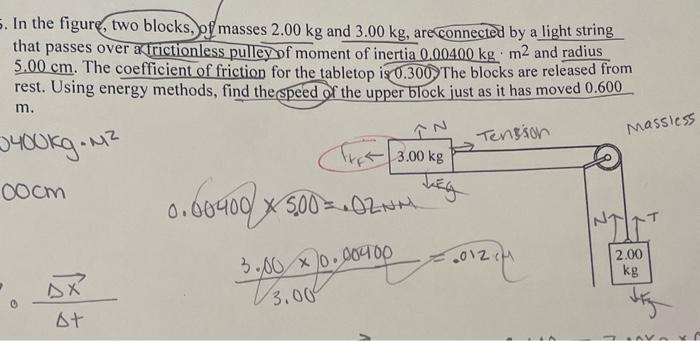 5. In the figure, two blocks, of masses 2.00 kg and 3.00 kg, are connected by a light string
that passes over a frictionless pulley of moment of inertia 0.00400 kg · m2 and radius
5.00 cm. The coefficient of friction for the tabletop is 0.300. The blocks are released from
rest. Using energy methods, find the speed of the upper block just as it has moved 0.600
m.
0400kg·m²
00cm
N
Tension
massless
3.00 kg
Fg
0.00400 × 5.00 = .02NM
3.00 × 0.00400 = .012
3.00
N T
2.00
kg
Fg
Δx
Δt